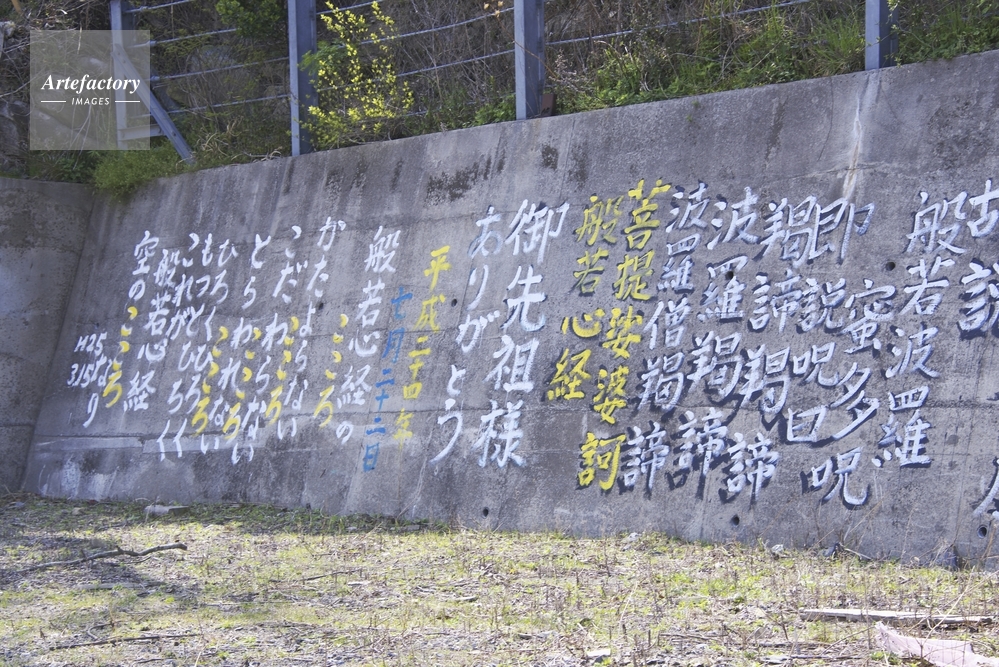 故説
般若波羅
蜜多呪
即説呪曰
羯諦羯諦
波羅羯諦
波羅僧羯諦
菩提娑婆訶
般若心経
御先祖様
ありがとう
平成二十四年
七月二十三日
般若心経の
こころ
かたよらない
こころ
こだわらない
こころ
とらわれない
こころ
ひろくひろく
もっとひろく
これが
般若心経
空のこころ
H25
3.15より
Artefactory
IMAGES